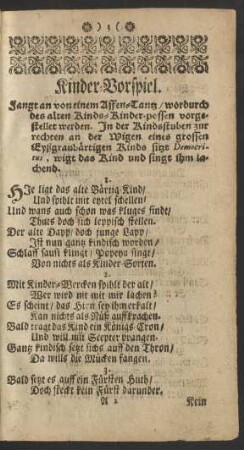 ) 3 (
Kinder-Vorspiel.
Fangt an von einem Affen-Tantz / wordurch
des alten Kinds-Kinder-possen vorge-
stellet werden. In der Kindsstuben zur
rechten an der Wigen eines grossen
Eyßgraubärtigen Kinds sitzt Democri-
tus, wigt das Kind und singt ihm la-
chend.
1.
HIe ligt das alte Bärtig Kind/
Und spihlt mit eytel schellen/
Und wans auch schon was kluges findt/
Thuts doch sich leppisch stellen.
Der alte Dapp/ doch junge Lapp/
Ist nun gantz kindisch worden/
Schlaff sausi klingt/ Popeya singt/
Von nichts als Kinder-Sorten.
2.
Mit Kinder-Wercken spihlt der alt/
Wer wird nit mit mir lachen?
Es scheint/ das Hirn sey ihm erkalt/
Kan nichts als Nüß auffkrachen.
Bald tragt das Kind ein Königs Cron/
Und will mit Scepter prangen.
Gantz kindisch setzt sichs auff den Thron/
Da wills die Mücken fangen.
3.
Bald setzt es auff ein Fürsten Huth/
Doch steckt kein Fürst darunder.
A 2 Nein